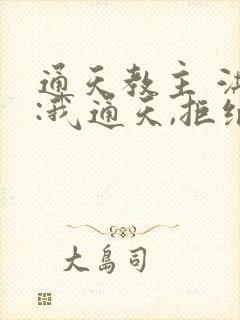 通天教主
:我通天,拒
大岛司